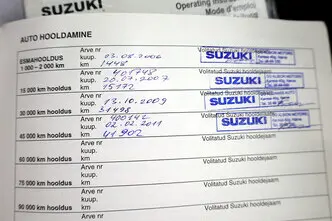 SUZUKI
Operating Instru
Mode d'emploi
AUTO HOOLDAMINE
ESMAHOOLDUS
1 000 – 2 000 km
Arve nr
kuup. 23.08.2006
km 1448
Volitatud Suzuki
SUZUKI
15 000 km hooldus
Arve nr 401748
kuup. 20.07.2007
km 15172
SUZUKI
30 000 km hooldus
Arve nr
kuup. 13.10.2009
km 31498
SUZUKI
45 000 km hooldus
Arve nr 400142
kuup. 02.02.2011
km 41902
SUZUKI
60 000 km hooldus
Arve nr
kuup.
km
Volitatud Suzuki hooldejaam
75 000 km hooldus
Arve nr
kuup.
km
Volitatud Suzuki hooldejaam
90 000 km hooldus
Arve nr
kuup.
km
Volitatud Suzuki hooldejaam